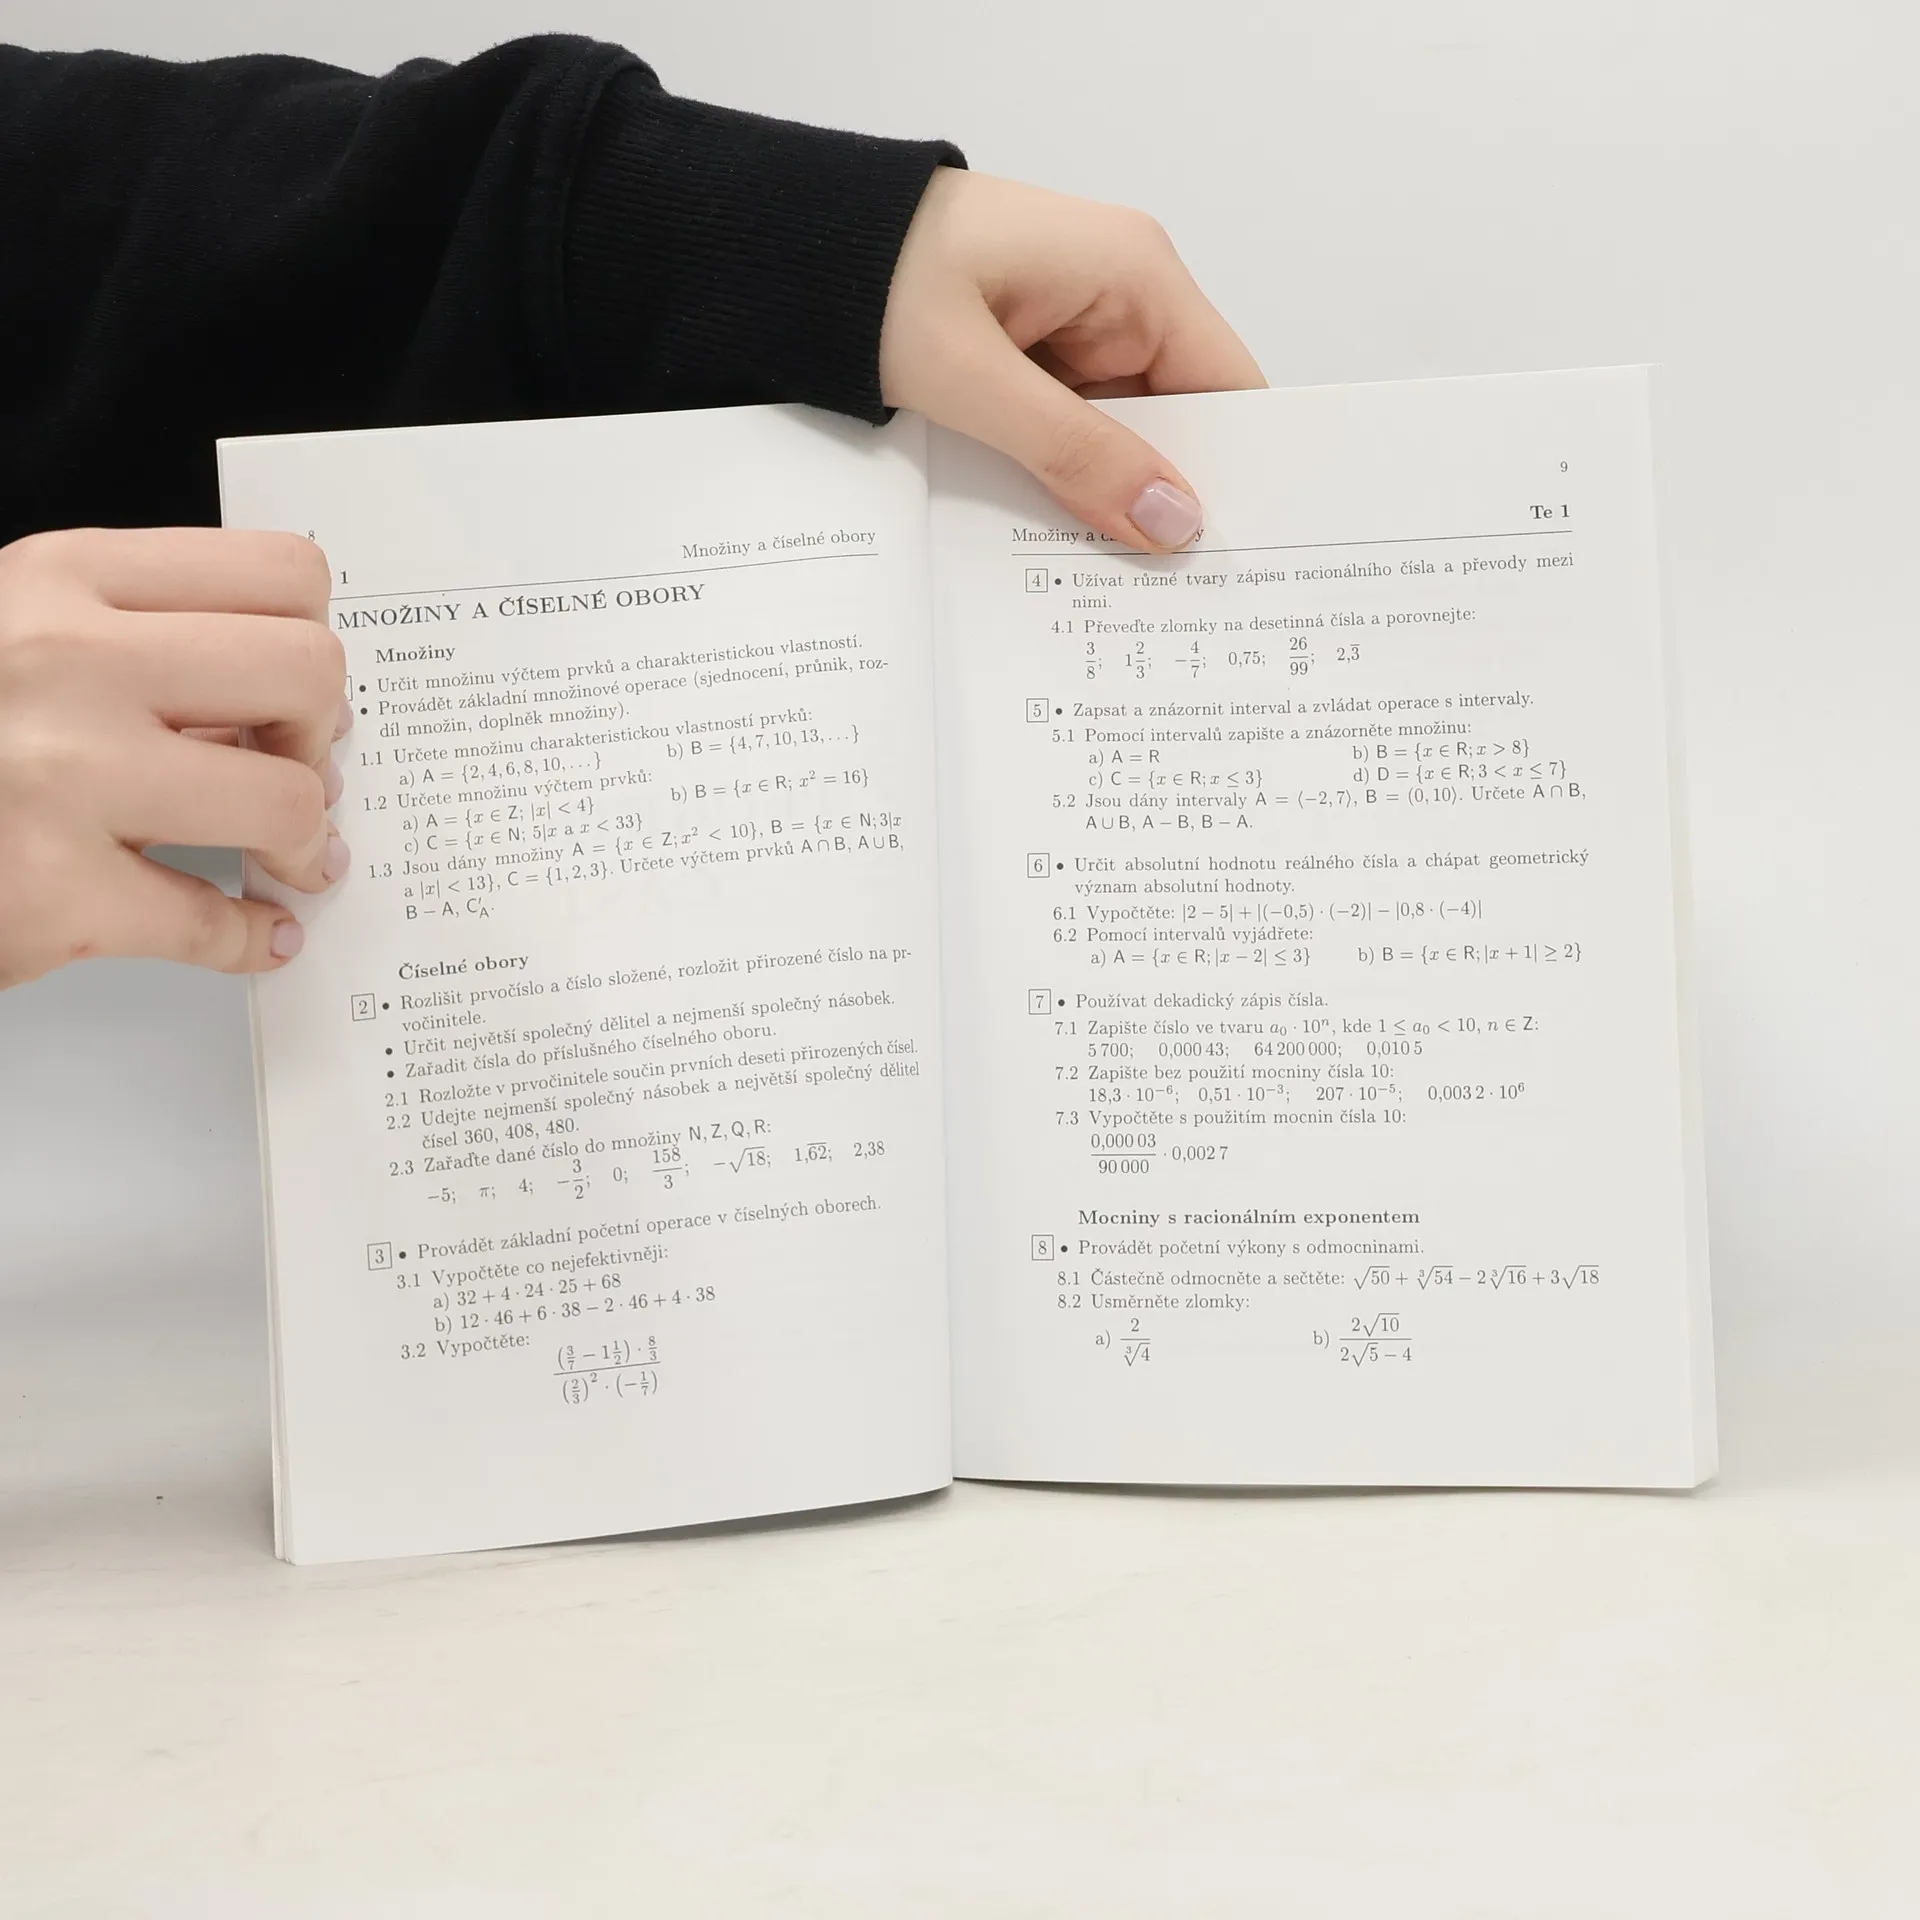 8
1
Množiny a číselné obory
MNOŽINY A ČÍSELNÉ OBORY
Množiny
• Určit množinu výčtem prvků a charakteristickou vlastností.
• Provádět základní množinové operace (sjednocení, průnik, roz-
díl množin, doplněk množiny).
1.1 Určete množinu charakteristickou vlastností prvků:
a) A = {2, 4, 6, 8, 10, . . .} b) B = {4, 7, 10, 13, . . .}
1.2 Určete množinu výčtem prvků:
a) A = {x ∈ Z; |x| < 4} b) B = {x ∈ R; x² = 16}
c) C = {x ∈ N; 5|x a x < 33}
1.3 Jsou dány množiny A = {x ∈ Z; x² < 10}, B = {x ∈ N; 3|x
a |x| < 13}, C = {1, 2, 3}. Určete výčtem prvků A ∩ B, A ∪ B,
B − A, C′_A.
Číselné obory
2 • Rozlišit prvočíslo a číslo složené, rozložit přirozené číslo na pr-
vočinitele.
• Určit největší společný dělitel a nejmenší společný násobek.
• Zařadit čísla do příslušného číselného oboru.
2.1 Rozložte v prvočinitele součin prvních deseti přirozených čísel.
2.2 Udejte nejmenší společný násobek a největší společný dělitel
čísel 360, 408, 480.
2.3 Zařaďte dané číslo do množiny N, Z, Q, R:
−5; π; 4; −3/2; 0; 158/3; −√18; 1,6̅2̅; 2,38
3 • Provádět základní početní operace v číselných oborech.
3.1 Vypočtěte co nejefektivněji:
a) 32 + 4 · 24 · 25 + 68
b) 12 · 46 + 6 · 38 − 2 · 46 + 4 · 38
3.2 Vypočtěte:
(3/7 − 1 1/2) · 8/3
(2/3)² · (−1/7)
9
Te 1
Množiny a
4 • Užívat různé tvary zápisu racionálního čísla a převody mezi
nimi.
4.1 Převeďte zlomky na desetinná čísla a porovnejte:
3/8; 1 2/3; −4/7; 0,75; 26/99; 2,3̅
5 • Zapsat a znázornit interval a zvládat operace s intervaly.
5.1 Pomocí intervalů zapište a znázorněte množinu:
a) A = R b) B = {x ∈ R; x > 8}
c) C = {x ∈ R; x ≤ 3} d) D = {x ∈ R; 3 < x ≤ 7}
5.2 Jsou dány intervaly A = ⟨−2, 7), B = (0, 10⟩. Určete A ∩ B,
A ∪ B, A − B, B − A.
6 • Určit absolutní hodnotu reálného čísla a chápat geometrický
význam absolutní hodnoty.
6.1 Vypočtěte: |2 − 5| + |(−0,5) · (−2)| − |0,8 · (−4)|
6.2 Pomocí intervalů vyjádřete:
a) A = {x ∈ R; |x − 2| ≤ 3} b) B = {x ∈ R; |x + 1| ≥ 2}
7 • Používat dekadický zápis čísla.
7.1 Zapište číslo ve tvaru a₀ · 10ⁿ, kde 1 ≤ a₀ < 10, n ∈ Z:
5 700; 0,000 43; 64 200 000; 0,010 5
7.2 Zapište bez použití mocniny čísla 10:
18,3 · 10⁻⁶; 0,51 · 10⁻³; 207 · 10⁻⁵; 0,003 2 · 10⁶
7.3 Vypočtěte s použitím mocnin čísla 10:
0,000 03
90 000 · 0,002 7
Mocniny s racionálním exponentem
8 • Provádět početní výkony s odmocninami.
8.1 Částečně odmocněte a sečtěte: √50 + ∛54 − 2∛16 + 3√18
8.2 Usměrněte zlomky:
a) 2/∛4 b) 2√10/(2√5 − 4)